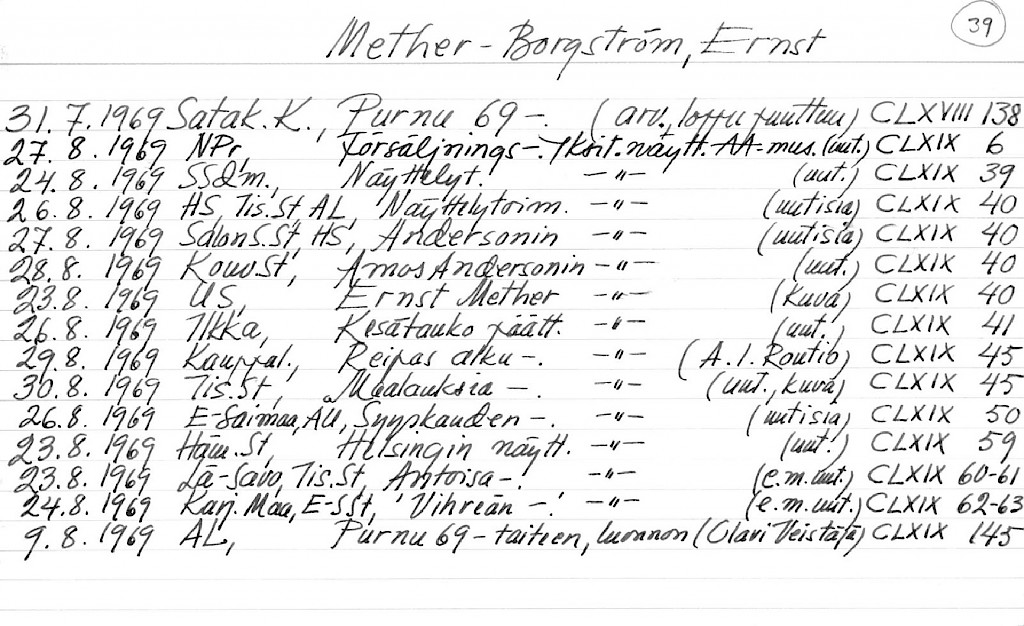 39
Mether-Borgström, Ernst
31.7.1969 Satak.K., Purnu 69-. (arv., loppu puuttuu) CLXVIII 138
27.8.1969 NPr, Försäljnings-. Yksit.näytt. AA-mus. (uut.) CLXIX 6
24.8.1969 SSd'm., Näyttelyt. -"- (uut.) CLXIX 39
26.8.1969 HS, Tis.St, AL, Näyttelytoim. -"- (uutisia) CLXIX 40
27.8.1969 SalonS.St, HS, Andersonin -"- (uutisia) CLXIX 40
28.8.1969 KouvSt, Amos Andersonin -"- (uut.) CLXIX 40
23.8.1969 US, Ernst Mether -"- (kuva) CLXIX 40
26.8.1969 Ilkka, Kesätauko päätt. -"- (uut.) CLXIX 41
29.8.1969 Kauppal., Reipas alku-. -"- (A.I. Routio) CLXIX 45
30.8.1969 Tis.St, Maalauksia -. -"- (uut., kuva) CLXIX 45
26.8.1969 E-Saimaa, AU, Syyskauden -. -"- (uutisia) CLXIX 50
23.8.1969 Häm.St, Helsingin näytt. -"- (uut.) CLXIX 59
23.8.1969 Lä-Savo, Tis.St, Antoisa-. -"- (e.m.uut.) CLXIX 60-61
24.8.1969 Karj.Maa, E-SSt, 'Vihreän -.' -"- (e.m.uut.) CLXIX 62-63
9.8.1969 AL, Purnu 69 - taiteen, luonnon (Olavi Veistäjä) CLXIX 145